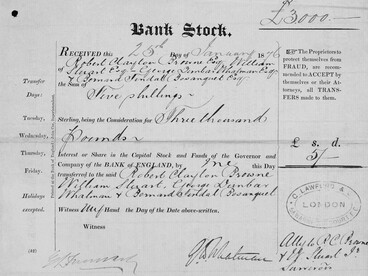 £3000
Bank Stock.
RECEIVED this 25th Day of January 1876 of
Robert Clayton Browne Esq William
Stuart Esq George Dunbar Whatman Esq
& Bernard Tindal Bosanquet Esq
the Sum of
Five shillings
Sterling, being the Consideration for Three thousand
Pounds
Interest or Share in the Capital Stock and Funds of the Governor and
Company of the BANK of ENGLAND, by me this Day
transferred to the said Robert Clayton Browne
William Stuart, George Dunbar
Whatman & Bernard Tindal Bosanquet
Witness my Hand the Day of the Date above-written.
Witness
Transfer
Days:
Tuesday,
Wednesday,
Thursday,
Friday.
Holidays
excepted.
The Proprietors to
protect themselves from
FRAUD, are recom-
mended to ACCEPT by
themselves or their At-
torneys, all TRANS-
FERS made to them.
£ s. d.
5/-
LONDON